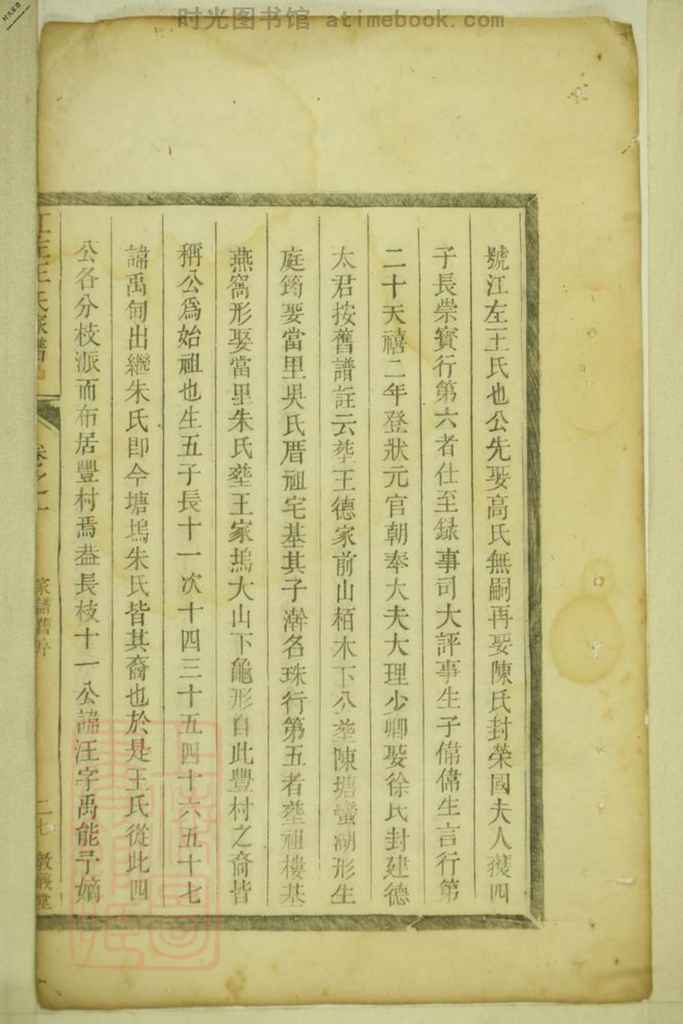 时光图书馆 atimebook.com
號江左王氏也公先娶高氏無嗣再娶陳氏封榮國夫人獲四
子長榮實行第六者仕至録事司大評事生子俻俻生言行第
二十天禧二年登狀元官朝奉大夫大理少卿娶徐氏封建德
太君按舊譜註云塟王德家前山栢木下公塟陳塘螢湖形生
庭筠娶當里吳氏厝祖宅基其子澣名珠行第五者塟祖樓基
燕窩形娶當里朱氏塟王家塢大山下龜形自此豐村之裔皆
稱公爲始祖也生五子長十一次十四三十五四十六五十七
諱禹甸出繼朱氏即今塘塢朱氏皆其裔也於是王氏從此四
公各分枝派而布居豐村焉葢長枝十一公諱汪字禹能予嫡
王氏家譜
卷之一
家譜舊序
二七
敦義堂